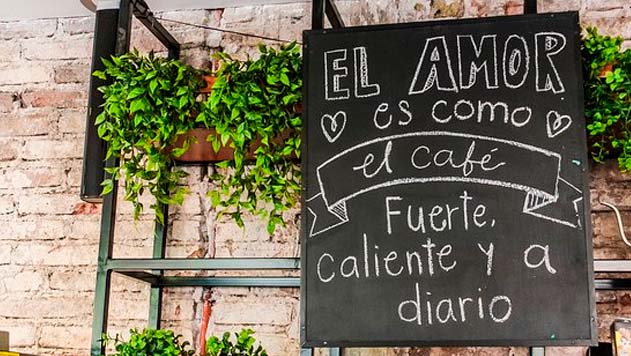 EL AMOR
es como
el café
Fuerte,
caliente y a
diario